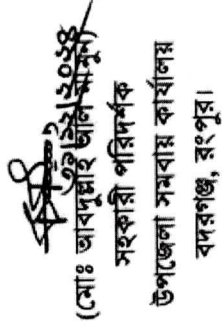 ৩১/১২/২০২৪
(মোঃ আবদুল্লাহ আল মামুন)
সহকারী পরিদর্শক
উপজেলা সমবায় কার্যালয়
বদরগঞ্জ, রংপুর।